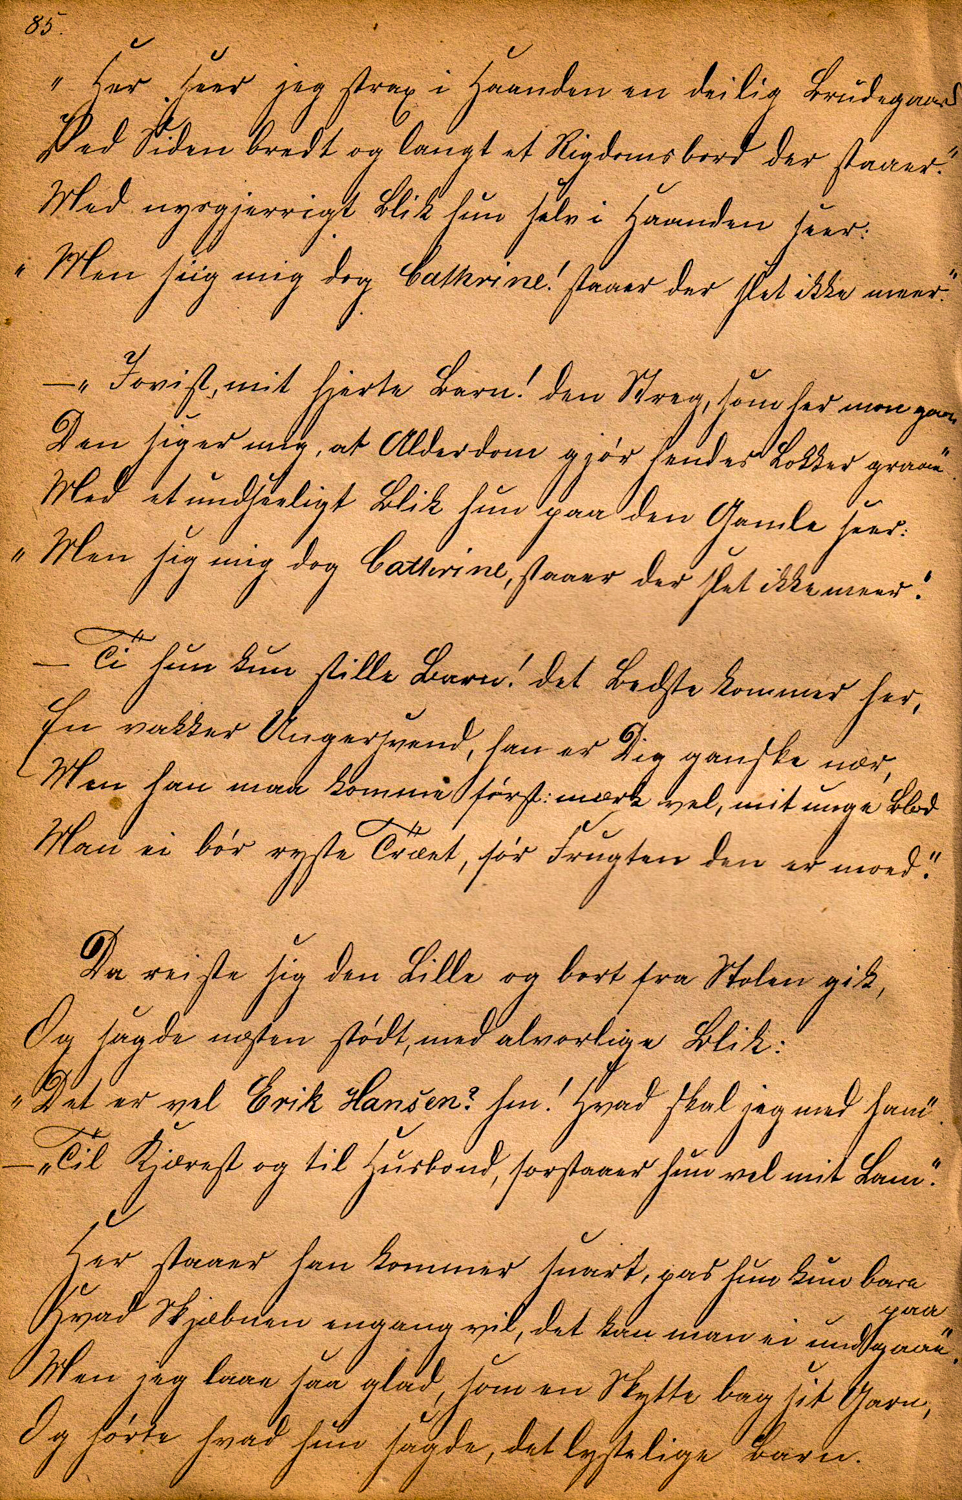 85.
"Her seer jeg strax i Haanden en deilig Brudegaard
Ved Siden bredt og langt et Rigdomsbord der staaer."
Med nysgjerrigt Blik hun selv i Haanden seer:
"Men siig mig dog Cathrine! staaer der slet ikke meer."
—"Jovist, mit hjerte Barn! den Streg, som her mon gaae
Den siger mig, at Alderdom gjør hendes Lokker graae"
Med et undseeligt Blik hun paa den Gamle seer:
"Men sig mig dog Cathrine, staaer der slet ikke meer!"
— "Ti hun kun stille Barn! det Bedste kommer her,
En vakker Ungersvend, han er Dig ganske nær,
Men han maa komme først: mærk vel, mit unge Blod
Man ei bør ryste Træet, før Frugten den er moed."
Da reiste sig den Lille og bort fra Stolen gik,
Og sagde næsten stødt, med alvorlige Blik:
"Det er vel Erik Hansen? hm! Hvad skal jeg med ham".
—"Til Kjærest og til Husbond, forstaaer hun vel mit Lam."
Her staaer han kommer snart, pas hun kun bare
paa
Hvad Skjæbnen engang vil, det kan man ei undgaae".
Men jeg laae saa glad, som en Skytte bag sit Garn,
Og hørte hvad hun sagde, det lystelige Barn.